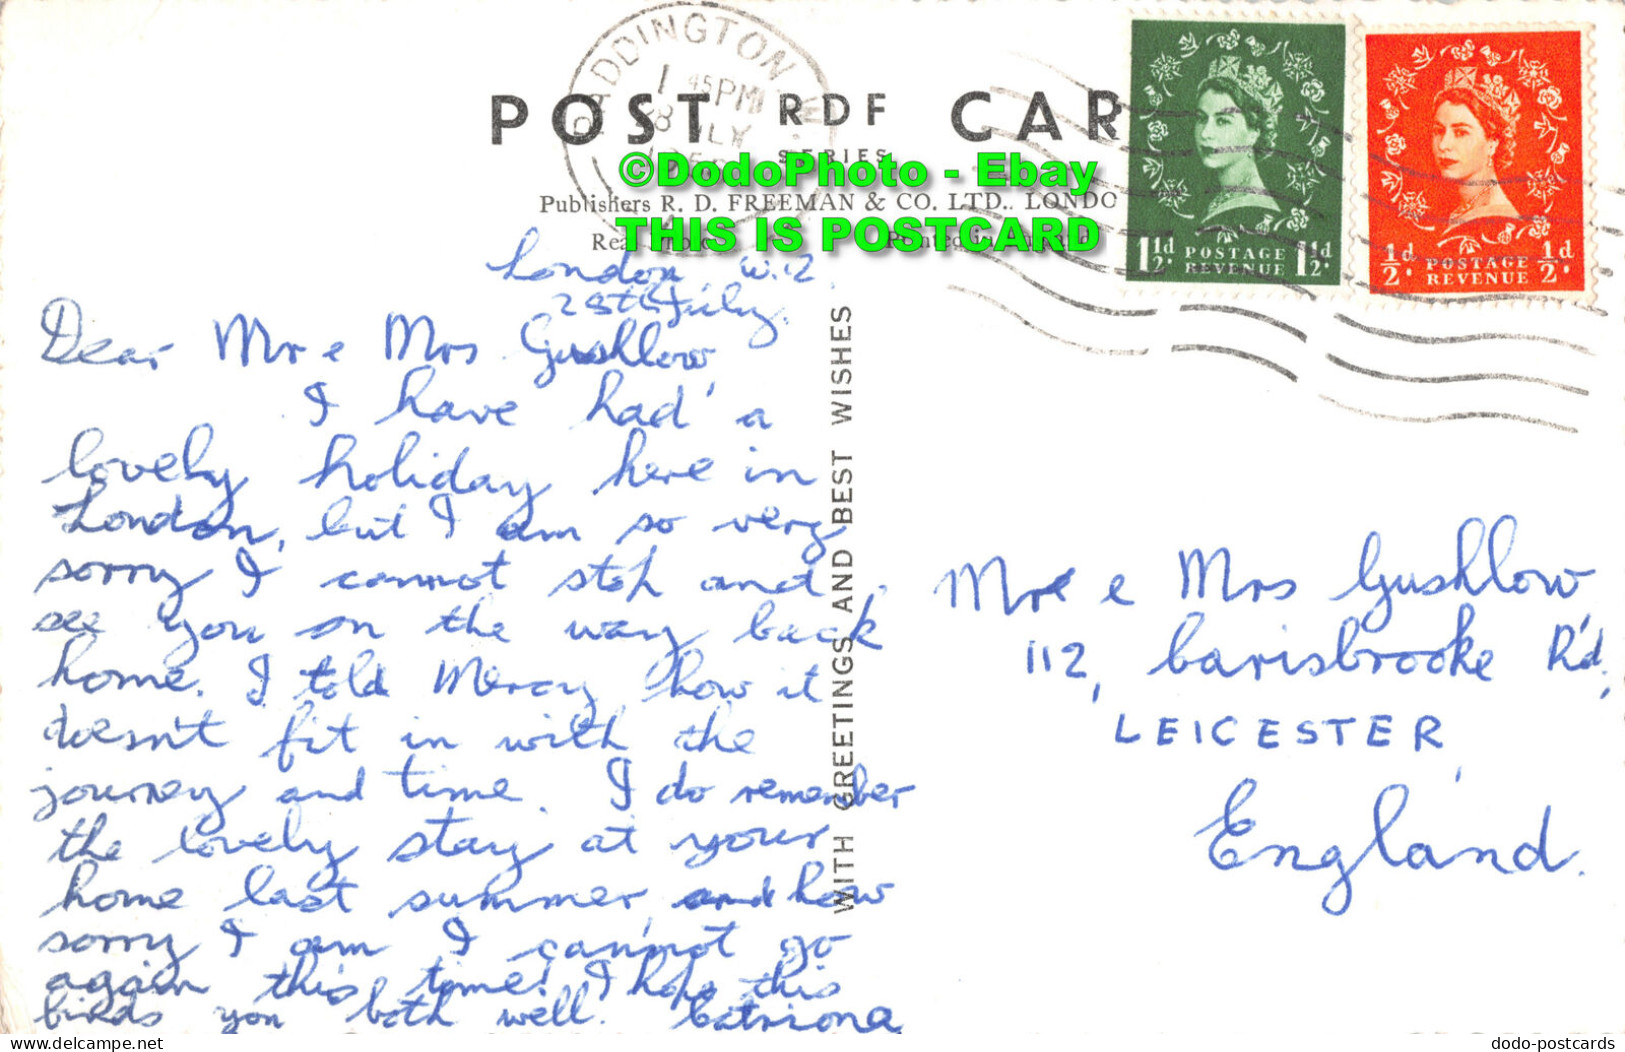 PADDINGTON W.
1 45PM
POST RDF CAR
SERIES
©DodoPhoto - Ebay
Publishers R. D. FREEMAN & CO. LTD.. LONDO
THIS IS POSTCARD
1½d POSTAGE REVENUE 1½d.
½d. POSTAGE REVENUE ½d.
London W.12.
28th July.
Dear Mr & Mrs Gushlow
I have had a
lovely holiday here in
London, but I am so very
sorry I cannot stop and
see you on the way back
home. I told Mercy how it
doesn't fit in with the
journey and time. I do remember
the lovely stay at your
home last summer, and how
sorry I am I cannot go
again this time! I hope this
finds you both well. Catriona
WITH GREETINGS AND BEST WISHES
Mr & Mrs Gushlow
112, Carisbrooke Rd,
LEICESTER,
England.
dodo-postcards
www.delcampe.net